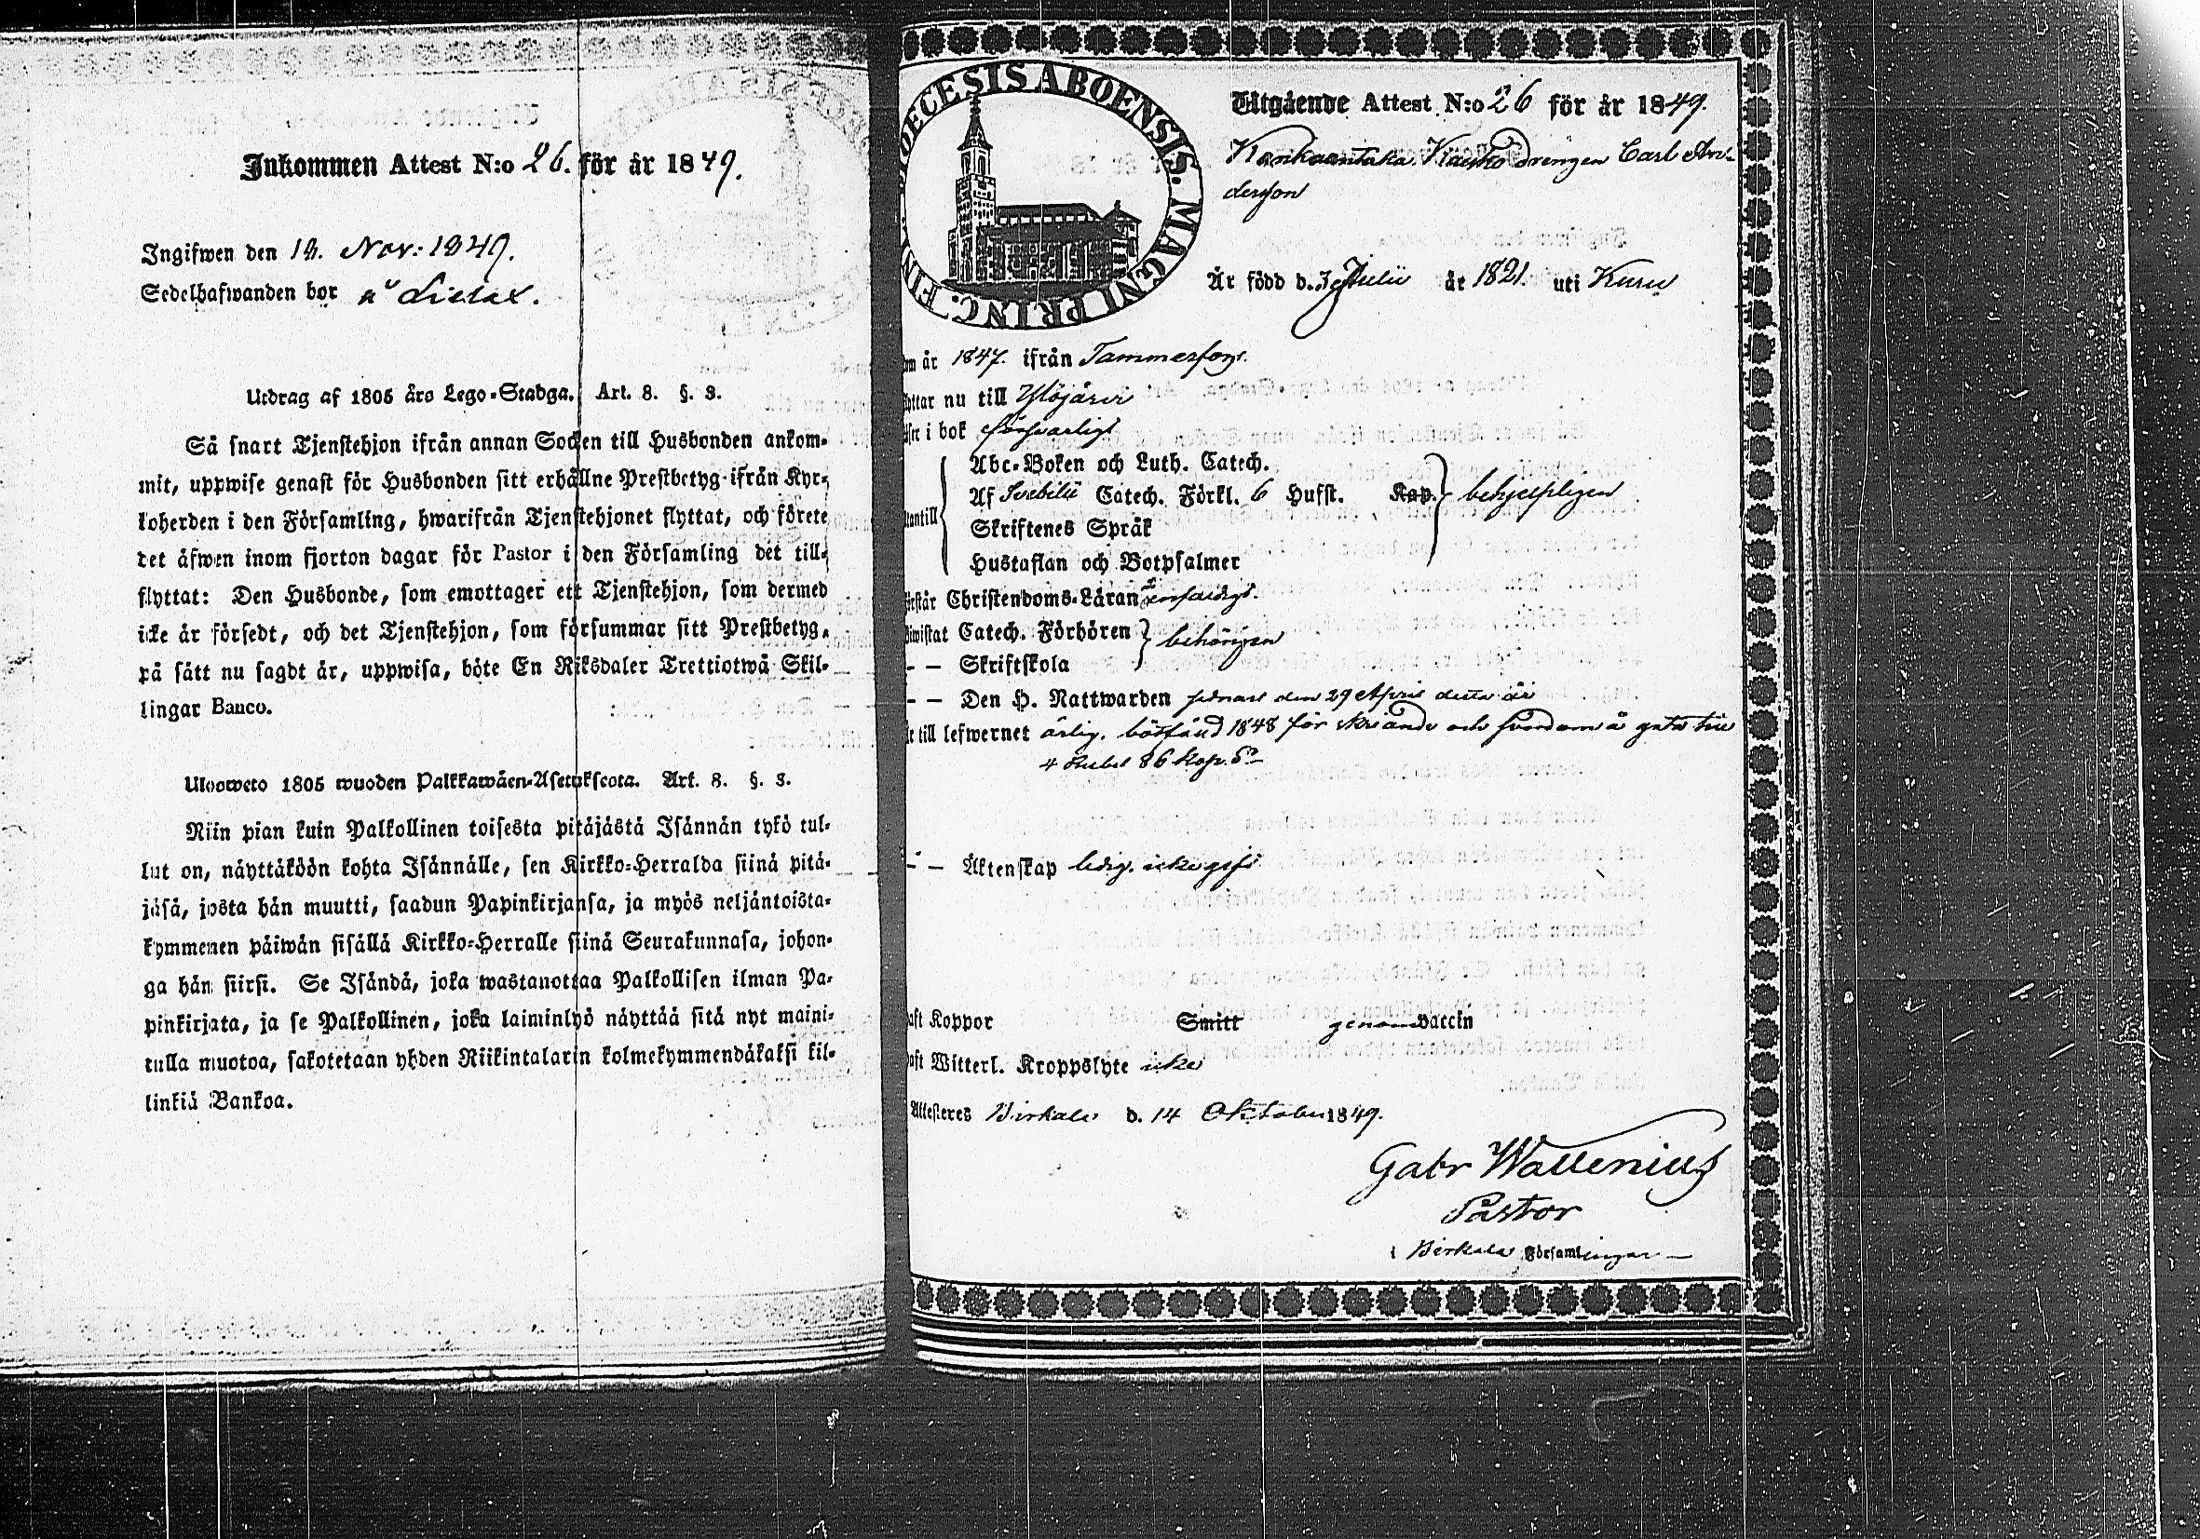 Inkommen Attest N:o 26. för år 1849.
Ingifwen den 18. Nov: 1849.
Sedelhafwanden bor å
Utdrag af 1805 års Lego-Stadga. Art. 8. §. 3.
Så snart Tjenstehjon ifrån annan Socken till Husbonden ankom-
mit, uppwise genast för Husbonden sitt erhållne Prestbetyg ifrån Kyr-
koherden i den Församling, hwarifrån Tjenstehjonet flyttat, och förete
det äfwen inom fjorton dagar för Pastor i den Församling det till-
flyttat: Den Husbonde, som emottager ett Tjenstehjon, som dermed
icke är försedt, och det Tjenstehjon, som försummar sitt Prestbetyg,
på sätt nu sagdt är, uppwisa, böte En Riksdaler Trettiotwå Skil-
lingar Banco.
Ulosweto 1805 wuoden Palkkawäen-Asetuksesta. Art. 8. §. 3.
Niin pian kuin Palkollinen toisesta pitäjästä Isännän tykö tul-
lut on, näyttäköön kohta Isännälle, sen Kirkko-Herralda siinä pitä-
jäsä, josta hän muutti, saadun Papinkirjansa, ja myös neljäntoista-
kymmenen päiwän sisällä Kirkko-Herralle siinä Seurakunnasa, johon-
ga hän siirsi. Se Isändä, joka wastanottaa Palkollisen ilman Pa-
pinkirjata, ja se Palkollinen, joka laiminlyö näyttää sitä nyt maini-
tulla muotoa, sakotetaan yhden Riikintalarin kolmekymmendäkaksi kil-
linkiä Bankoa.
DIOECESIS ABOENSIS. MAGNI PRINC. FIN
Utgående Attest N:o 26 för år 1849.
drengen Carl An-
dersson
Är född d. Julii år 1821. uti Kuru
om år 1847. ifrån Tammerfors.
yttar nu till Ylöjärvi
äser i bok försvarligt
Abc-Boken och Luth. Catech.
Af Svebilii Catech. Förkl. 6 Hufst. Kap. behjelpligen
utantill Skriftenes Språk
Hustaflan och Botpsalmer
förstår Christendoms-Läran enfaldigt.
biwistat Catech. Förhören behörigen
– – Skriftskola
– – Den H. Nattwarden sednast den 29 April detta år
är till lefwernet ärlig. bötfäld 1848 för och å
4 Rubel 86 Kop. S:r
– – Äktenskap ledig. icke gift
haft Koppor Smitt genom vaccin
haft Witterl. Kroppslyte icke
Attesteres Birkala d. 14 Oktober 1849.
Gabr Wallenius
Pastor
i Birkala Församlingar